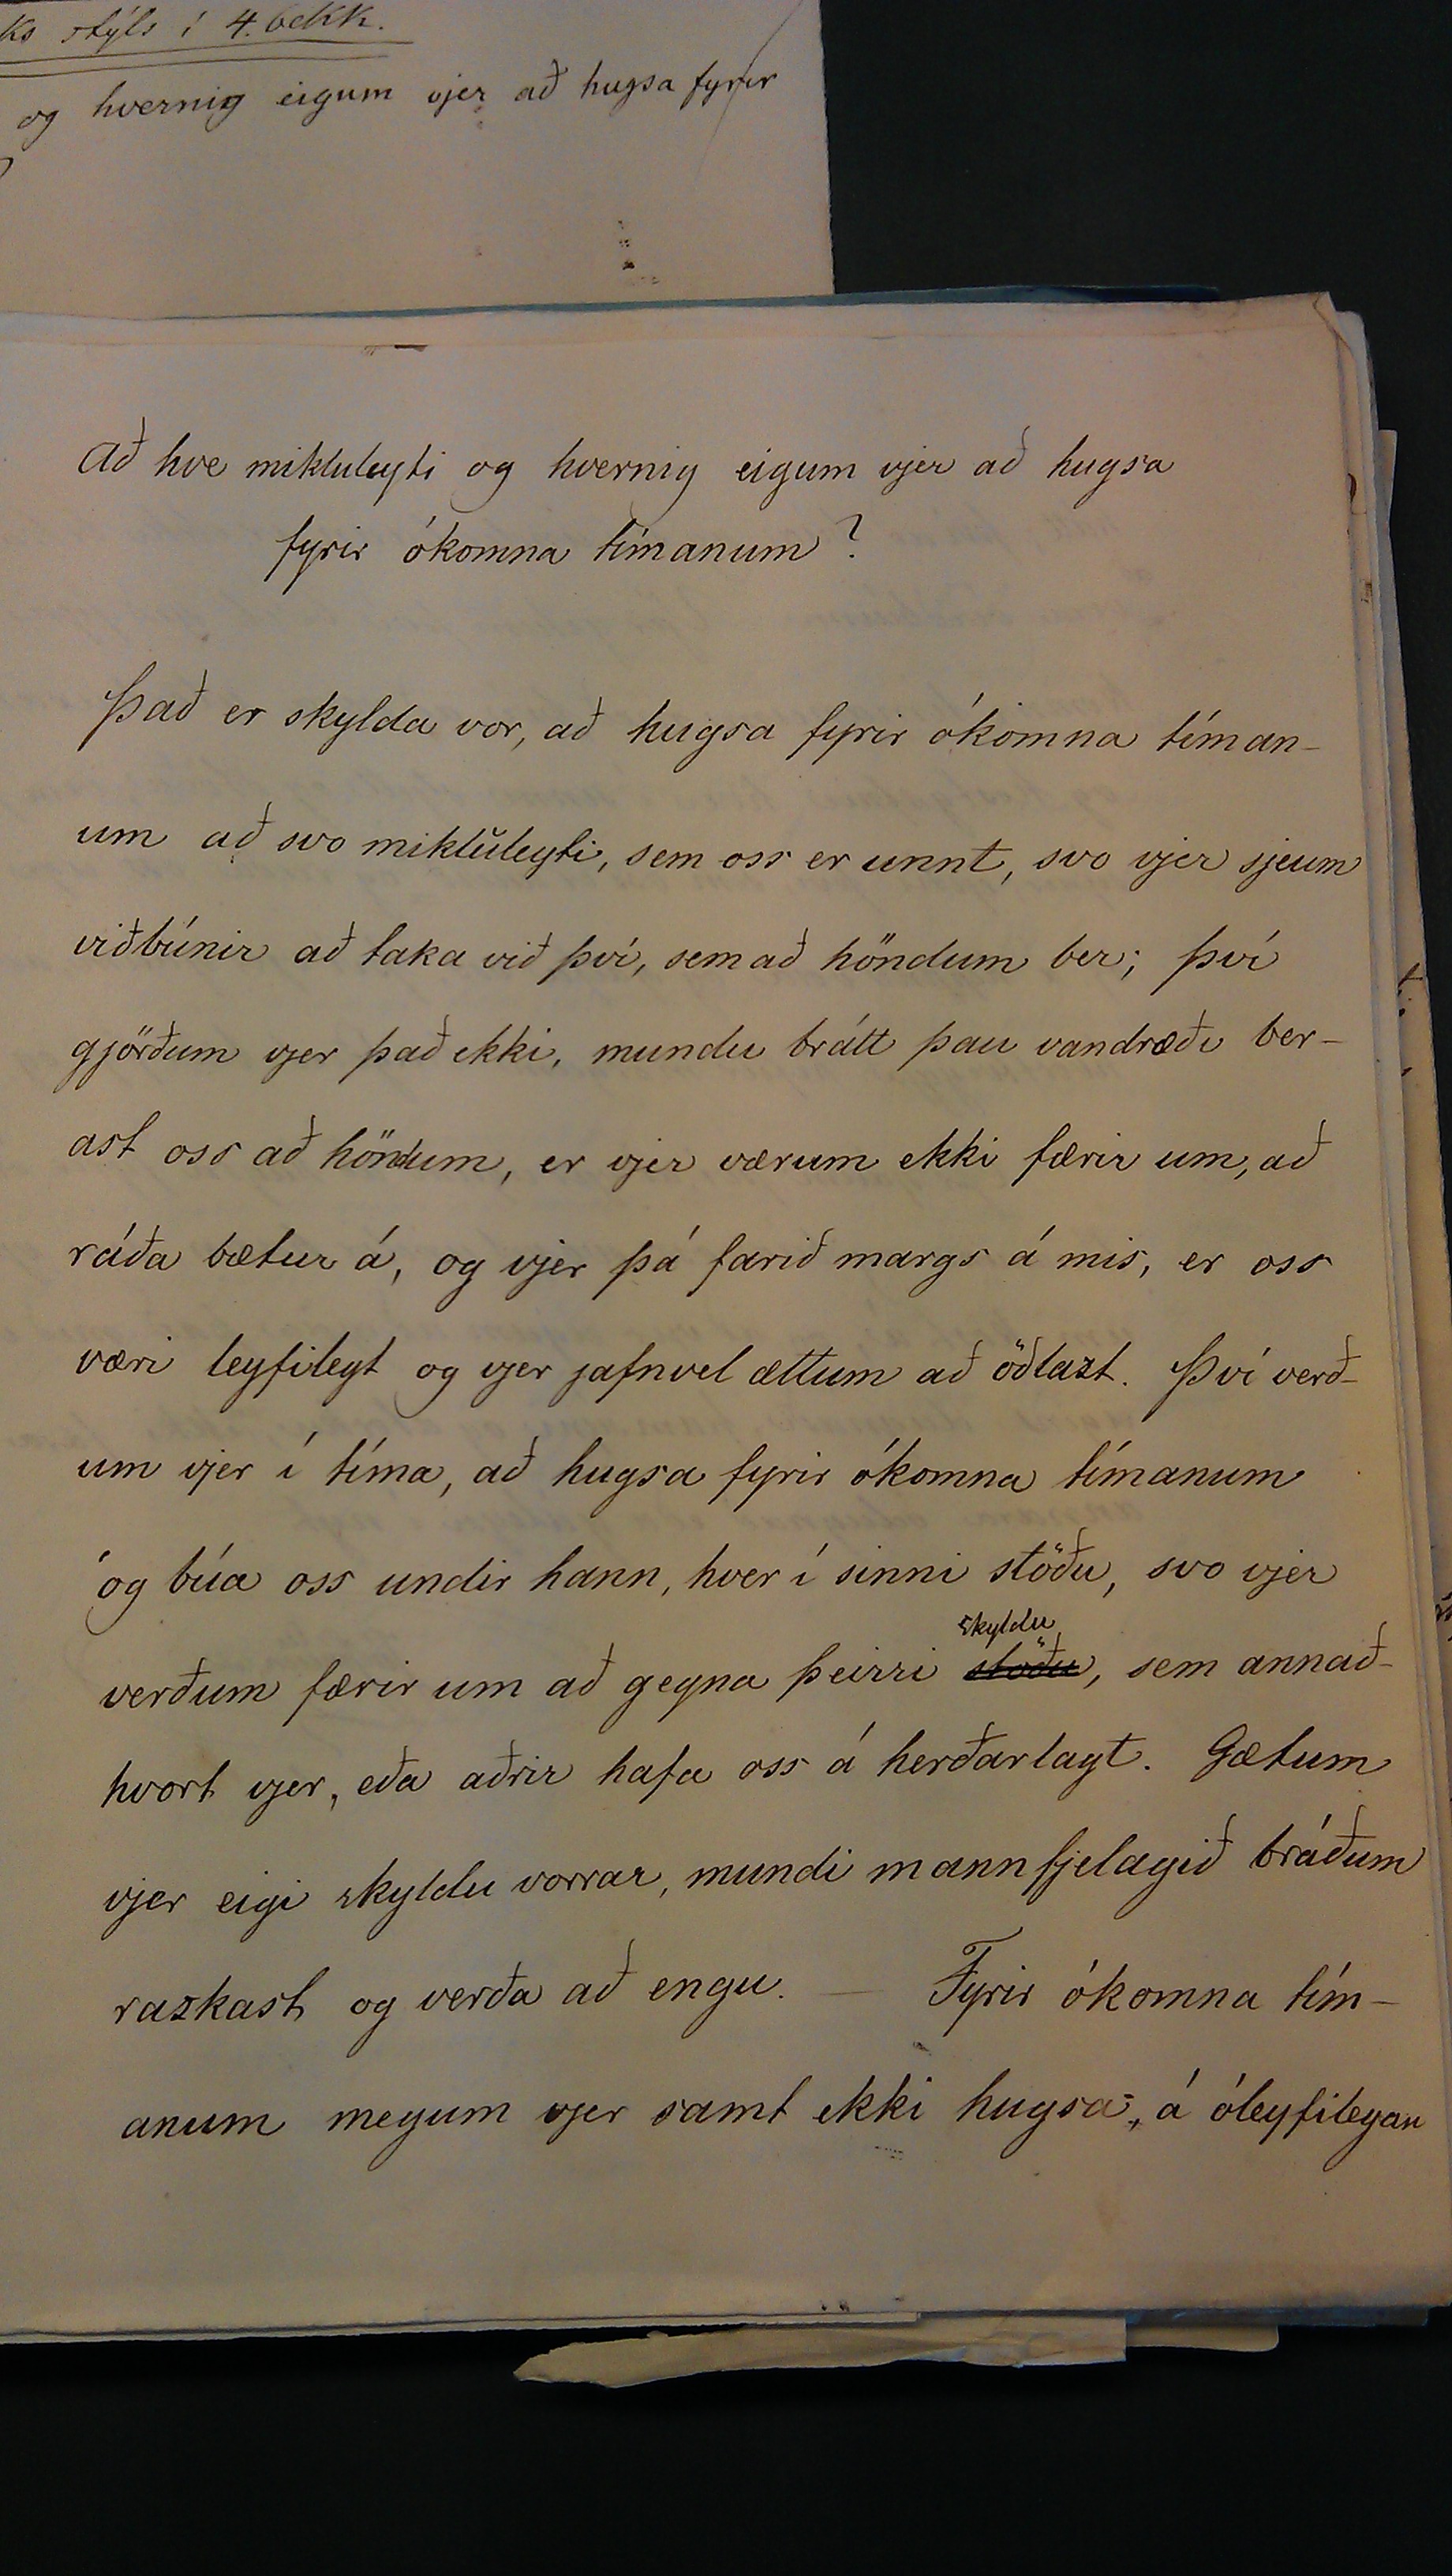 ks stýls í 4. bekk.
og hvernig eigum vjer að hugsa fyrir
Að hve mikluleyti og hvernig eigum vjer að hugsa
fyrir ókomna tímanum?
Það er skylda vor, að hugsa fyrir ókomna tíman-
um að svo mikluleyti, sem oss er unnt, svo vjer sjeum
viðbúnir að taka við því, sem að höndum ber; því
gjörðum vjer það ekki, mundu brátt þau vandræði ber-
ast oss að höndum, er vjer værum ekki færir um, að
ráða bætur á, og vjer þá farið margs á mis, er oss
væri leyfilegt og vjer jafnvel ættum að öðlazt. Því verð-
um vjer í tíma, að hugsa fyrir ókomna tímanum
og búa oss undir hann, hver í sinni stöðu, svo vjer
skyldu
verðum færir um að gegna þeirri stöðu, sem annað-
hvort vjer, eða aðrir hafa oss á herðar lagt. Gætum
vjer eigi skyldu vorrar, mundi mannfjelagið bráðum
raskast og verða að engu. — Fyrir ókomna tím-
anum megum vjer samt ekki hugsa, á óleyfilegan